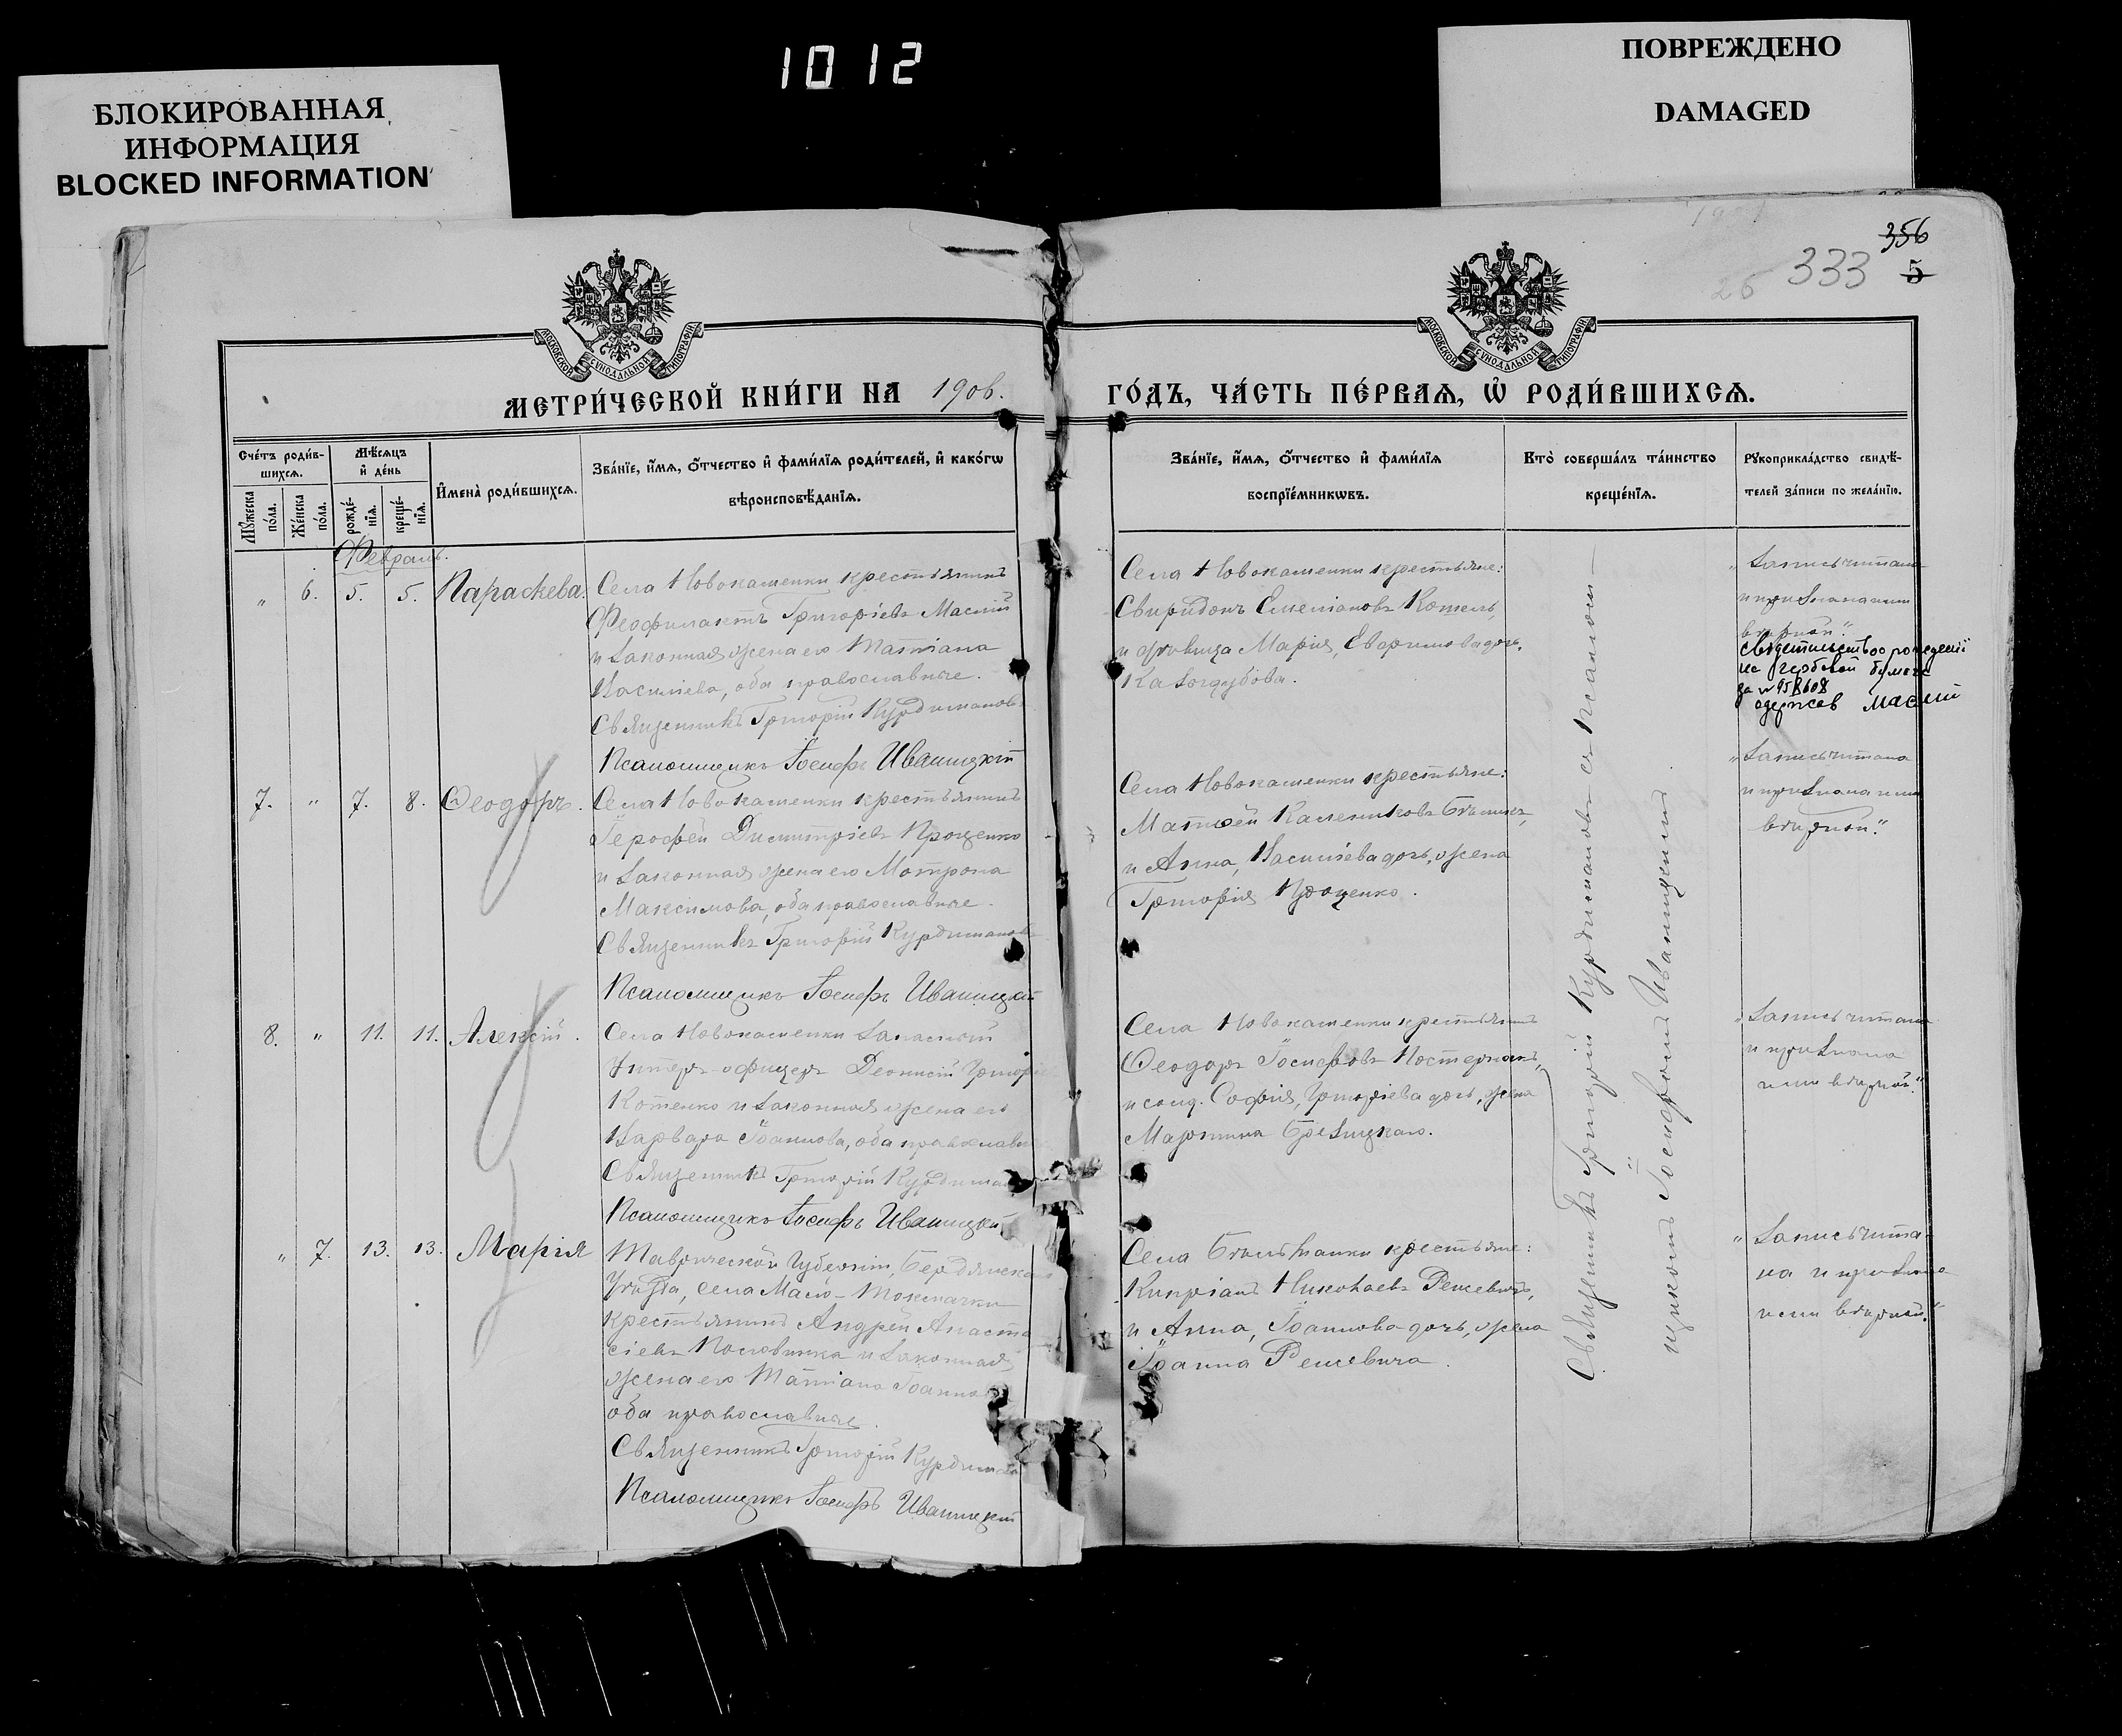 1012
БЛОКИРОВАННАЯ
ИНФОРМАЦИЯ
BLOCKED INFORMATION
ПОВРЕЖДЕНО
DAMAGED
356
26 333 5
МОСКОВСКОЙ СѴНОДАЛЬНОЙ ТИПОГРАФІИ
МОСКОВСКОЙ СѴНОДАЛЬНОЙ ТИПОГРАФІИ
МЕТРИ́ЧЕСКОЙ КНИ́ГИ НА 1906.
ГО́ДЪ, ЧА́СТЬ ПЕ́РВАѦ, Ѽ РОДИ́ВШИХСѦ.
Сче́тъ роди́в-
шихсѧ.
Мꙋ́жеска по́ла.
Же́нска по́ла.
Мѣ́сѧцъ
и҆ де́нь
рожде́-нїѧ.
креще́-нїѧ.
И҆мена̀ роди́вшихсѧ.
Зва́нїе, и҆́мѧ, ѻ҆́тчество и҆ фами́лїѧ роди́телей, и҆ како́гѡ
вѣроисповѣ́данїѧ.
Зва́нїе, и҆́мѧ, ѻ҆́тчество и҆ фами́лїѧ
воспрїе́мникѡвъ.
Кто̀ соверша́лъ та́инство
креще́нїѧ.
Рꙋкоприкла́дство свидѣ́-
телей за́писи по жела́нїю.
Февраль.
„ 6. 5. 5. Параскева.
Села Новокаменки крестьянинъ
Феофилактъ Григоріевъ Маслій
и законная жена его Татіана
Василіева, оба православные.
Священникъ Григорій Курдимановъ
Псаломщикъ Іосифъ Иваницкій
Села Новокаменки крестьяне:
Свиридонъ Емеліановъ Котель,
и дѣвица Марія, дочь,
„Запись читана
и признана нами
вѣрной.“
Свидетельство о рождении
на гербовой бумаге
за № 958608
одержав Маслій
7. „ 7. 8. Ѳеодоръ.
Села Новокаменки крестьянинъ
Іерофей Димитріевъ Проценко
и законная жена его Мотрона
Максимова, оба православные.
Священникъ Григорій Курдимановъ
Псаломщикъ Іосифъ Иваницкій
Села Новокаменки крестьяне:
Матѳей
и Анна, Василіева дочь, жена
Григорія Проценко.
„Запись читана
и признана нами
вѣрной.“
8. „ 11. 11. Алексій.
Села Новокаменки запасной
Унтеръ-офицеръ Деонисій
Котенко и законная жена его
Варвара Іоаннова, оба православн
Священникъ Григорій Курдиман
Псаломщикъ Іосифъ Иваницкій
Села Новокаменки крестьянинъ
Ѳеодоръ Іосифовъ Постернакъ,
и солд. Софія, Григоріева дочь, жена
Мартина
„Запись читана
и признана
нами вѣрной.“
„ 7. 13. 13. Марія
Таврической губерніи, Бердянска
Уѣзда, села Мало-Токмачки
крестьянинъ Андрей Анаста
сіевъ Половинка и законная
жена его Татіана Іоаннов
оба православные.
Священникъ Григорій Курдиман
Псаломщикъ Іосифъ Иваницкій
Села крестьяне:
Кипріанъ Николаевъ Решевичъ,
и Анна, Іоаннова дочь, жена
Іоанна Решевича.
„Запись чита-
на и признана
нами вѣрной.“
Священникъ Григорій Курдимановъ съ Псалом-
щикомъ Іосифомъ Иваницкимъ